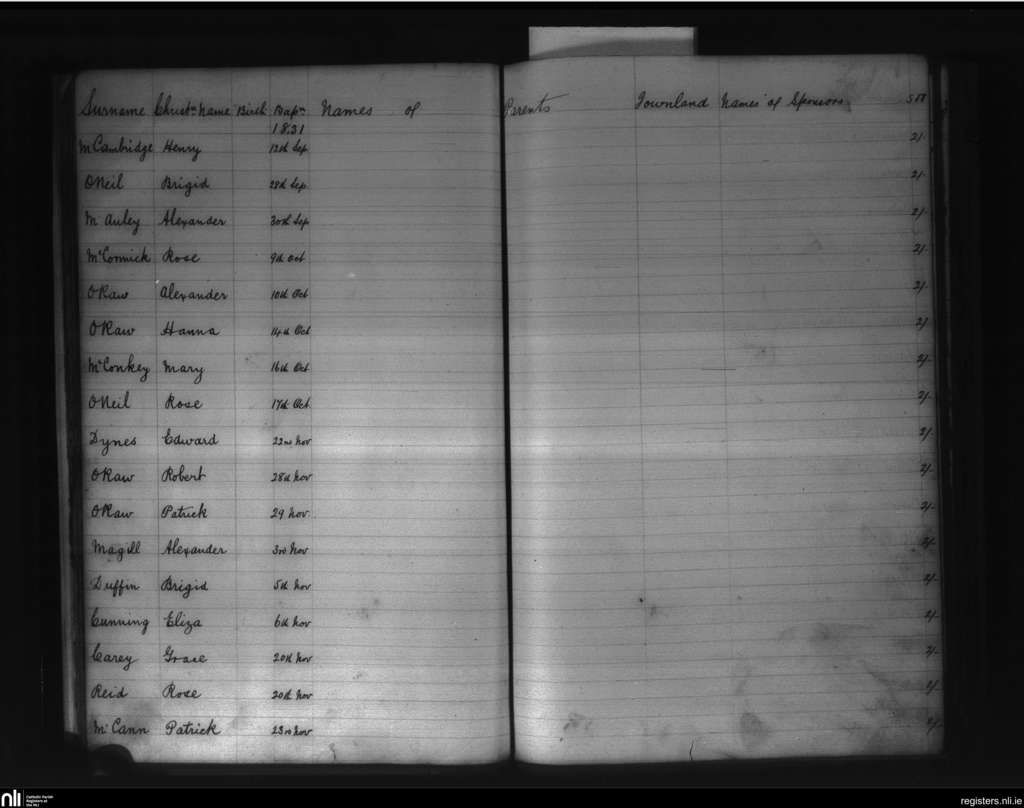 Surname Christn name Birth Bapn Names of Parents Townland Names of Sponsors
1831
McCambridge Henry 12th Sep 2/-
ONeil Brigid 28th Sep 2/-
McAuley Alexander 30th Sep 2/-
McCormick Rose 9th Oct 2/-
OKaw Alexander 10th Oct 2/-
OKaw Hanna 14th Oct 2/-
McConkey Mary 16th Oct 2/-
ONeil Rose 17th Oct 2/-
Dynes Edward 22nd Nov 2/-
OKaw Robert 28th Nov 2/-
OKaw Patrick 29 Nov. 2/-
Magill Alexander 3rd Nov 2/-
Duffin Brigid 5th Nov 2/-
Cunning Eliza 6th Nov 2/-
Carey Grace 20th Nov 2/-
Reid Rose 20th Nov 2/-
McCann Patrick 23rd Nov 2/-
nli Catholic Parish Registers at the NLI
registers.nli.ie